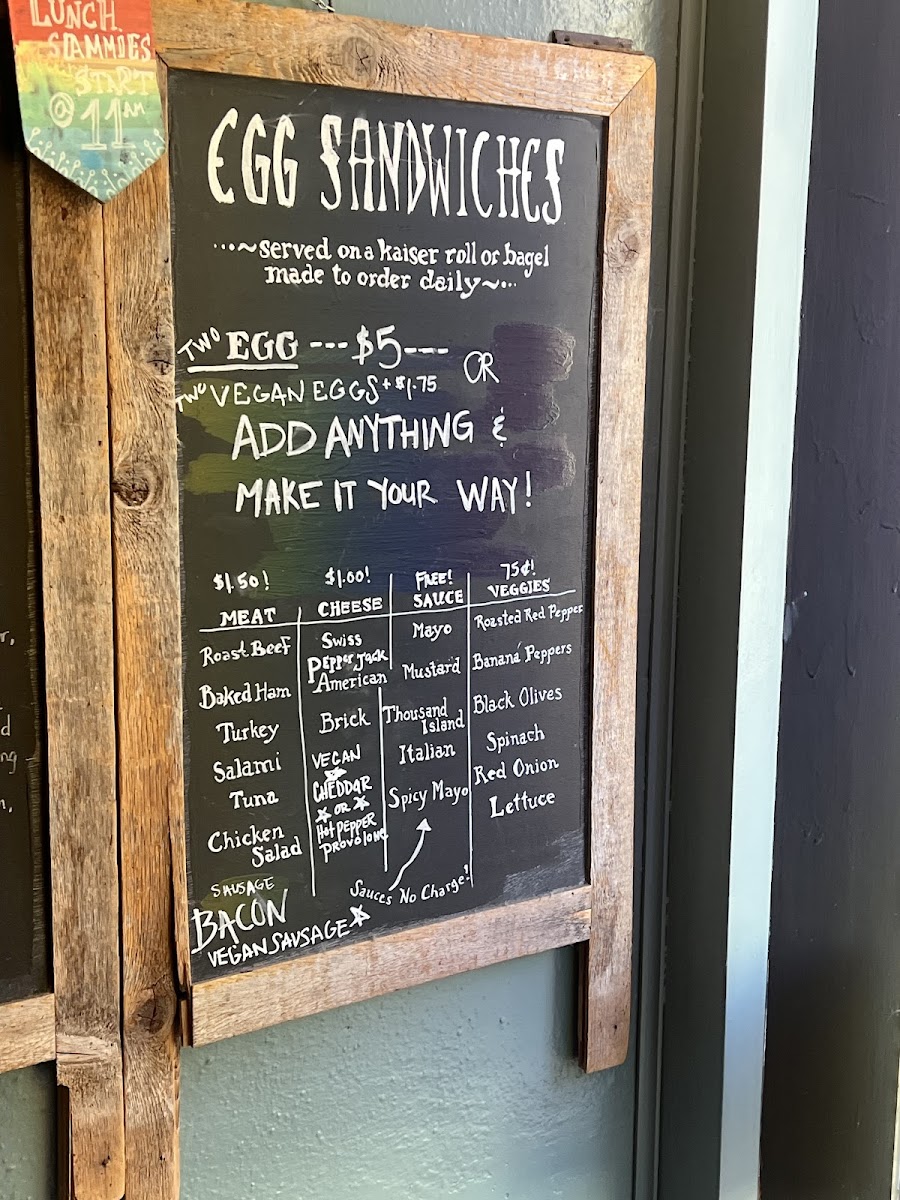 LUNCH
SAMMIES
START
@ 11 AM
EGG SANDWICHES
...~served on a kaiser roll or bagel
made to order daily~...
TWO EGG ---$5---
OR
TWO VEGAN EGGS + $1.75
ADD ANYTHING &
MAKE IT YOUR WAY!
$1.50!
MEAT
Roast Beef
Baked Ham
Turkey
Salami
Tuna
Chicken
Salad
SAUSAGE
BACON
VEGAN SAUSAGE
$1.00!
CHEESE
Swiss
Pepper Jack
American
Brick
VEGAN
CHEDDAR
OR
Hot PEPPER
PROVOLONE
FREE!
SAUCE
Mayo
Mustard
Thousand
Island
Italian
Spicy Mayo
Sauces No Charge!
75¢!
VEGGIES
Roasted Red Pepper
Banana Peppers
Black Olives
Spinach
Red Onion
Lettuce